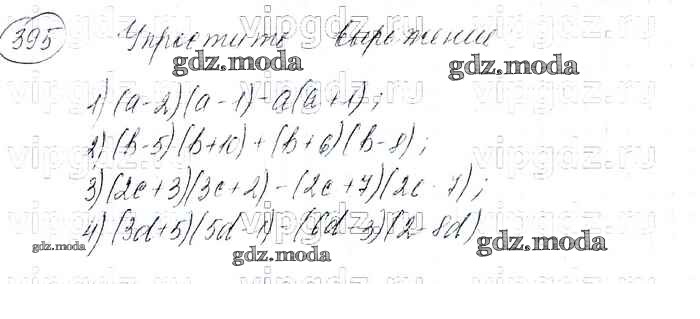 395 Упростить выражение
gdz.moda gdz.moda
1) (a-2)(a-1)-a(a+1);
2) (b-5)(b+10)+(b+6)(b-8);
3) (2c+3)(3c+2)-(2c+7)(2c-7);
4) (3d+5)(5d-1)-(6d-3)(2-8d)
gdz.moda gdz.moda gdz.moda
vipgdz.ru vipgdz.ru vipgdz.ru